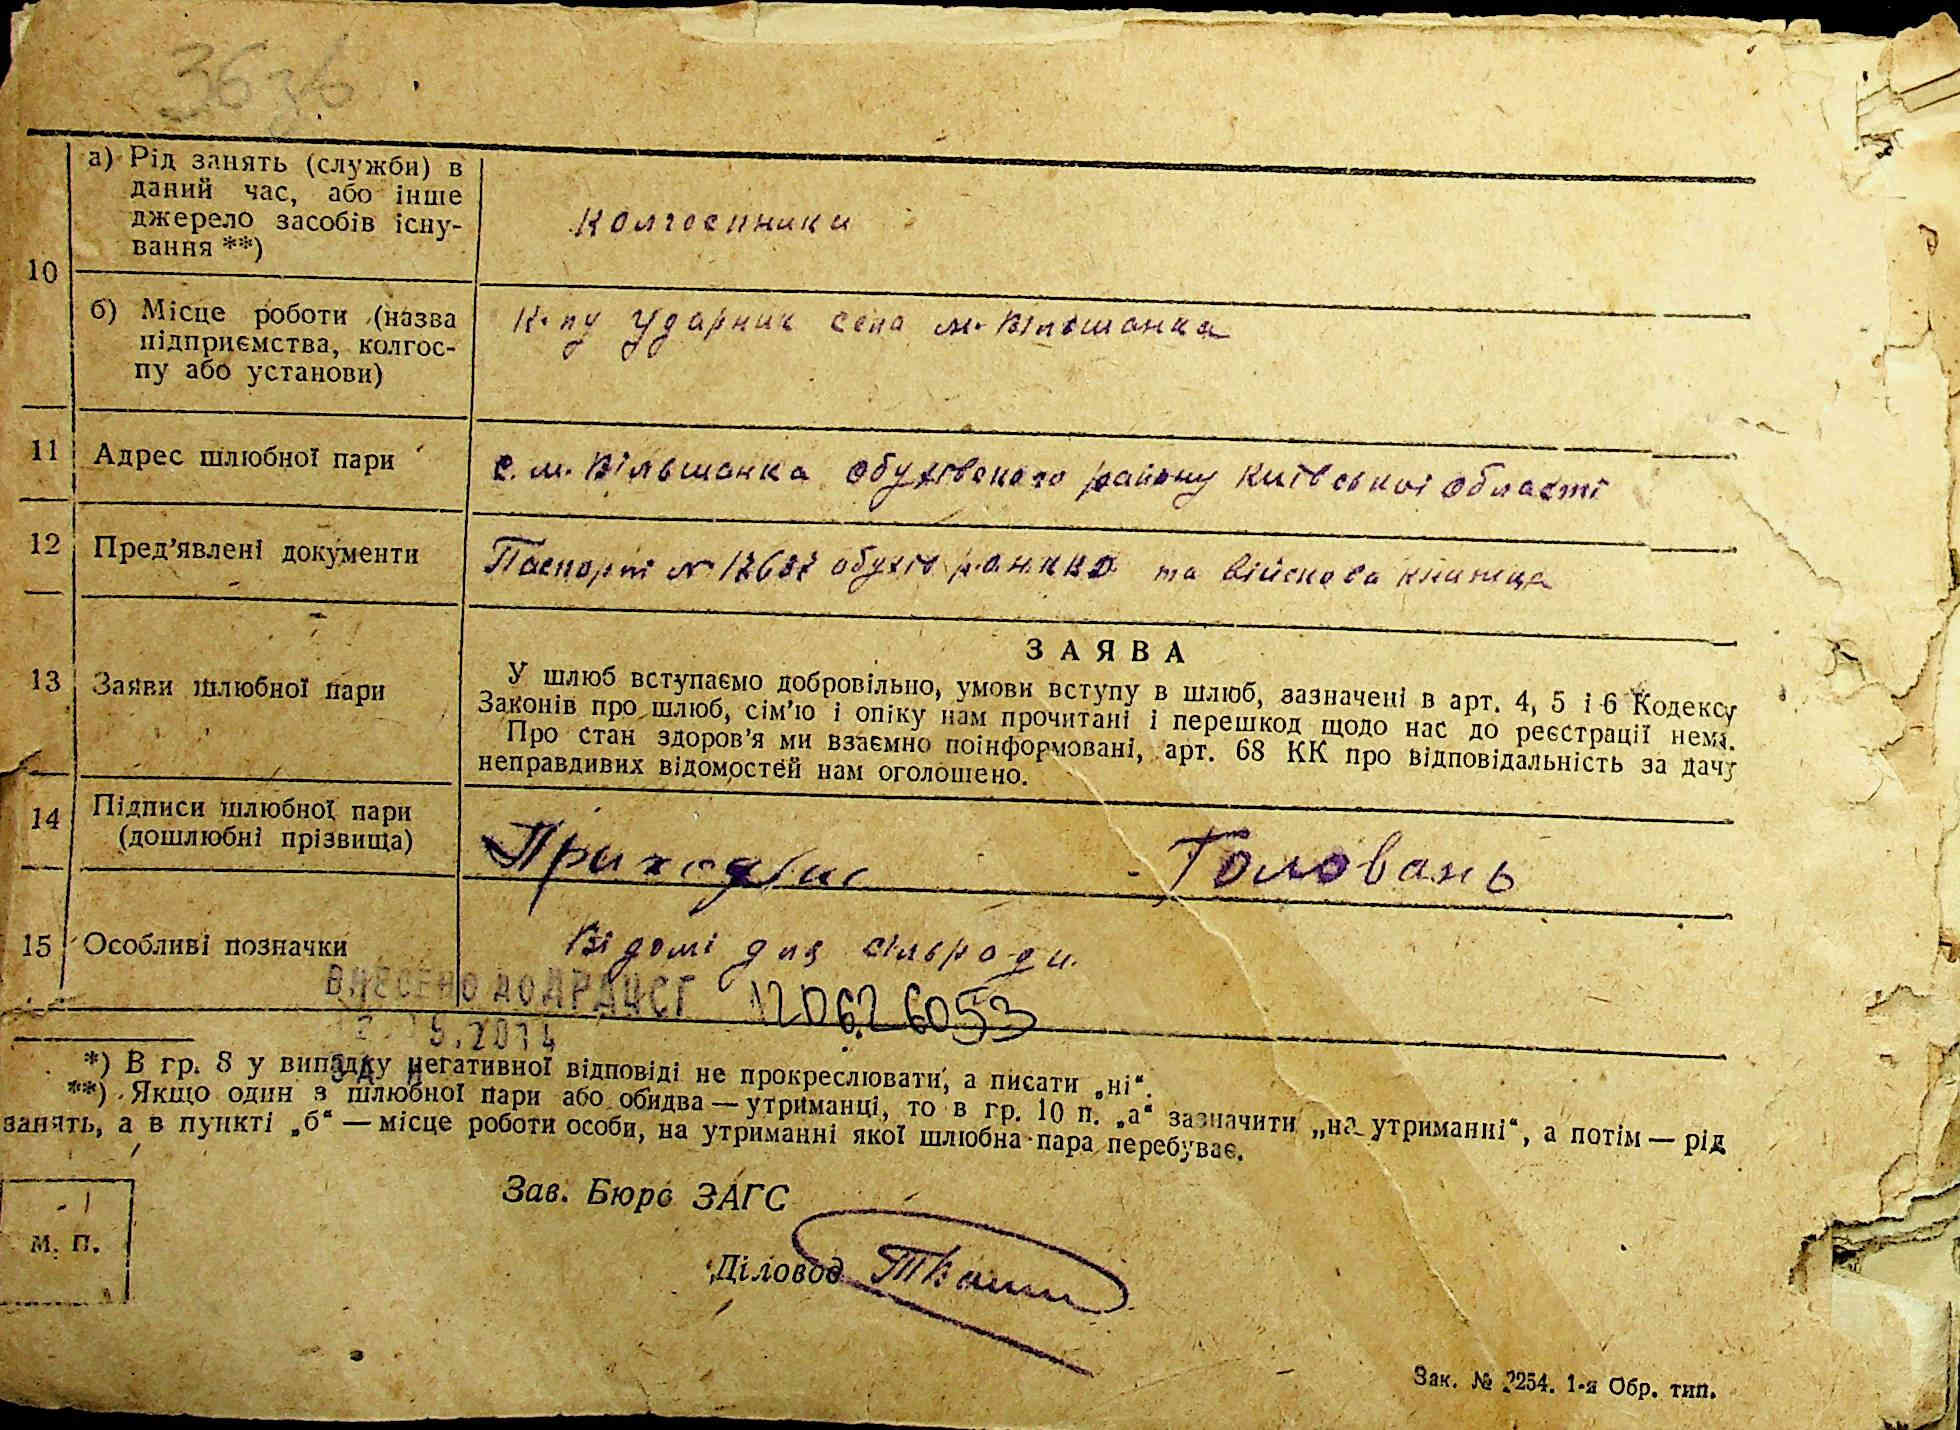 а) Рід занять (служби) в
даний час, або інше
джерело засобів існу-
вання **)
колгоспники
10
б) Місце роботи (назва
підприємства, колгос-
пу або установи)
К-пу Ударник села м-Вільшанка
11
Адрес шлюбної пари
с. м. Вільшанка Обухівского району Київської області
12
Пред’явлені документи
Паспорт № та військова книжка
13
Заяви шлюбної пари
ЗАЯВА
У шлюб вступаємо добровільно, умови вступу в шлюб, зазначені в арт. 4, 5 і 6 Кодексу
Законів про шлюб, сім’ю і опіку нам прочитані і перешкод щодо нас до реєстрації нема.
Про стан здоров’я ми взаємно поінформовані, арт. 68 КК про відповідальність за дачу
неправдивих відомостей нам оголошено.
14
Підписи шлюбної пари
(дошлюбні прізвища)
Головань
15
Особливі позначки
Відомі для сільради.
ВНЕСЕНО ДО ДРАЦСГ
12062 6053
*) В гр. 8 у випадку негативної відповіді не прокреслювати, а писати „ні“.
**) Якщо один з шлюбної пари або обидва — утриманці, то в гр. 10 п. „а“ зазначити „на утриманні“, а потім — рід
занять, а в пункті „б“ — місце роботи особи, на утриманні якої шлюбна пара перебуває.
Зав. Бюро ЗАГС
М. П.
Діловод
Зак. № 2254. 1-я Обр. тип.